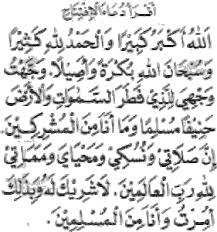 أقرأ دعاء الإفتتاح
اَللّٰهُ أَكْبَرُ كَبِيْرًا وَالْحَمْدُ لِلّٰهِ كَثِيْرًا
وَسُبْحَانَ اللّٰهِ بُكْرَةً وَأَصِيْلًا. وَجَّهْتُ
وَجْهِيَ لِلَّذِيْ فَطَرَ السَّمٰوَاتِ وَالْأَرْضَ
حَنِيْفًا مُسْلِمًا وَمَا أَنَا مِنَ الْمُشْرِكِيْنَ.
إِنَّ صَلَاتِيْ وَنُسُكِيْ وَمَحْيَايَ وَمَمَاتِيْ
لِلّٰهِ رَبِّ الْعَالَمِيْنَ. لَا شَرِيْكَ لَهُ وَبِذٰلِكَ
أُمِرْتُ وَأَنَا مِنَ الْمُسْلِمِيْنَ.